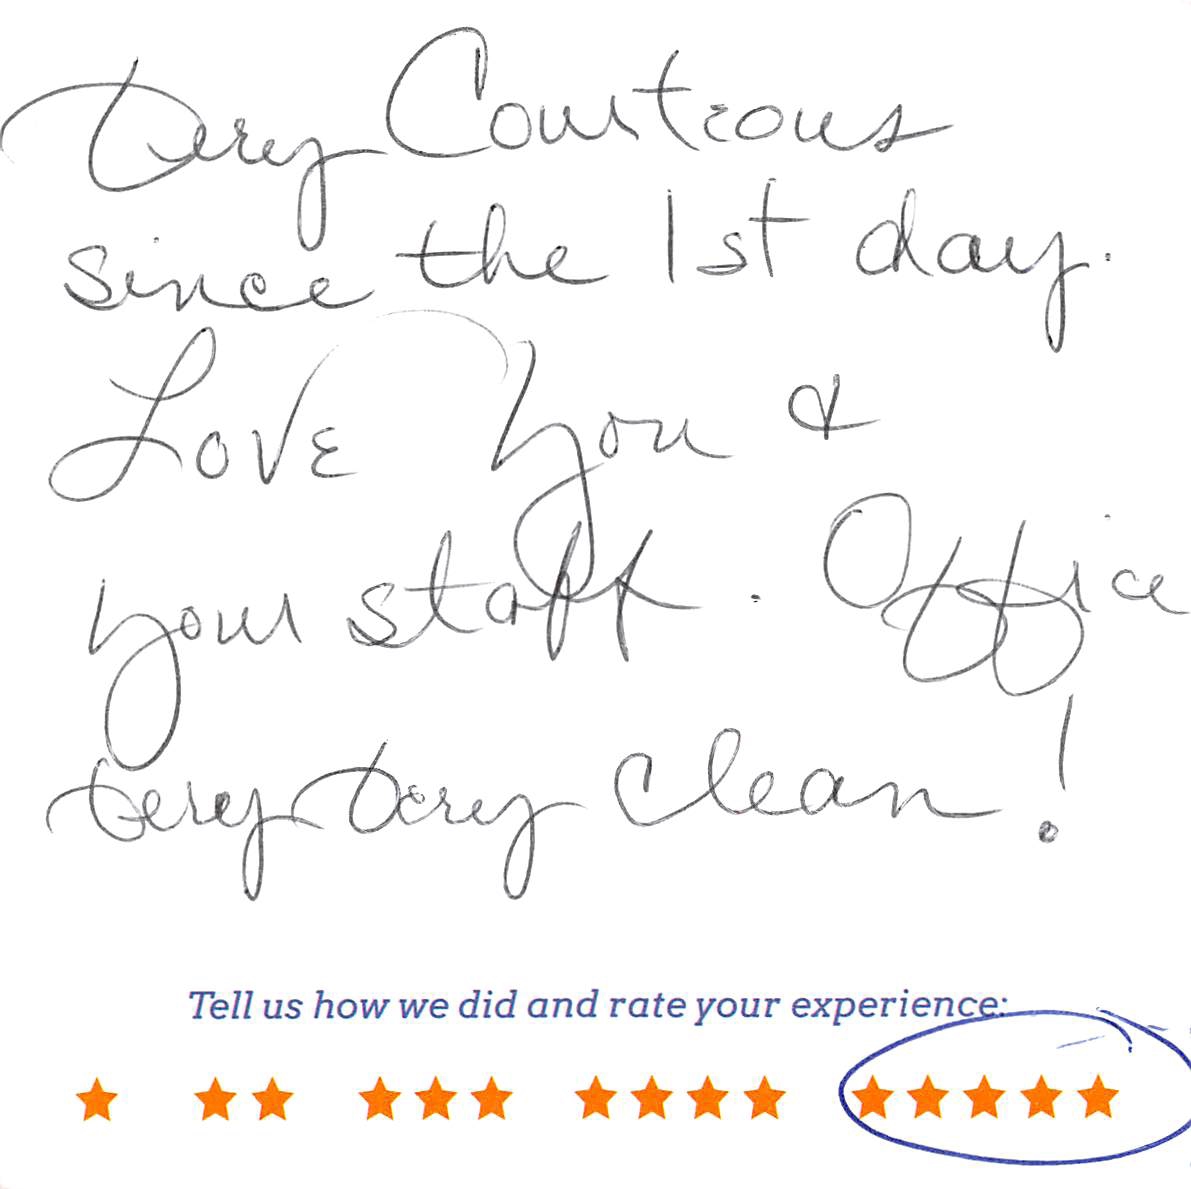 Very Courteous
since the 1st day.
Love you &
your staff. Office
very very clean!
Tell us how we did and rate your experience: